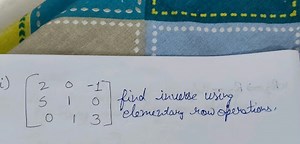 i) [ 2 0 -1
5 1 0
0 1 3 ] find inverse using
elementary row operations.